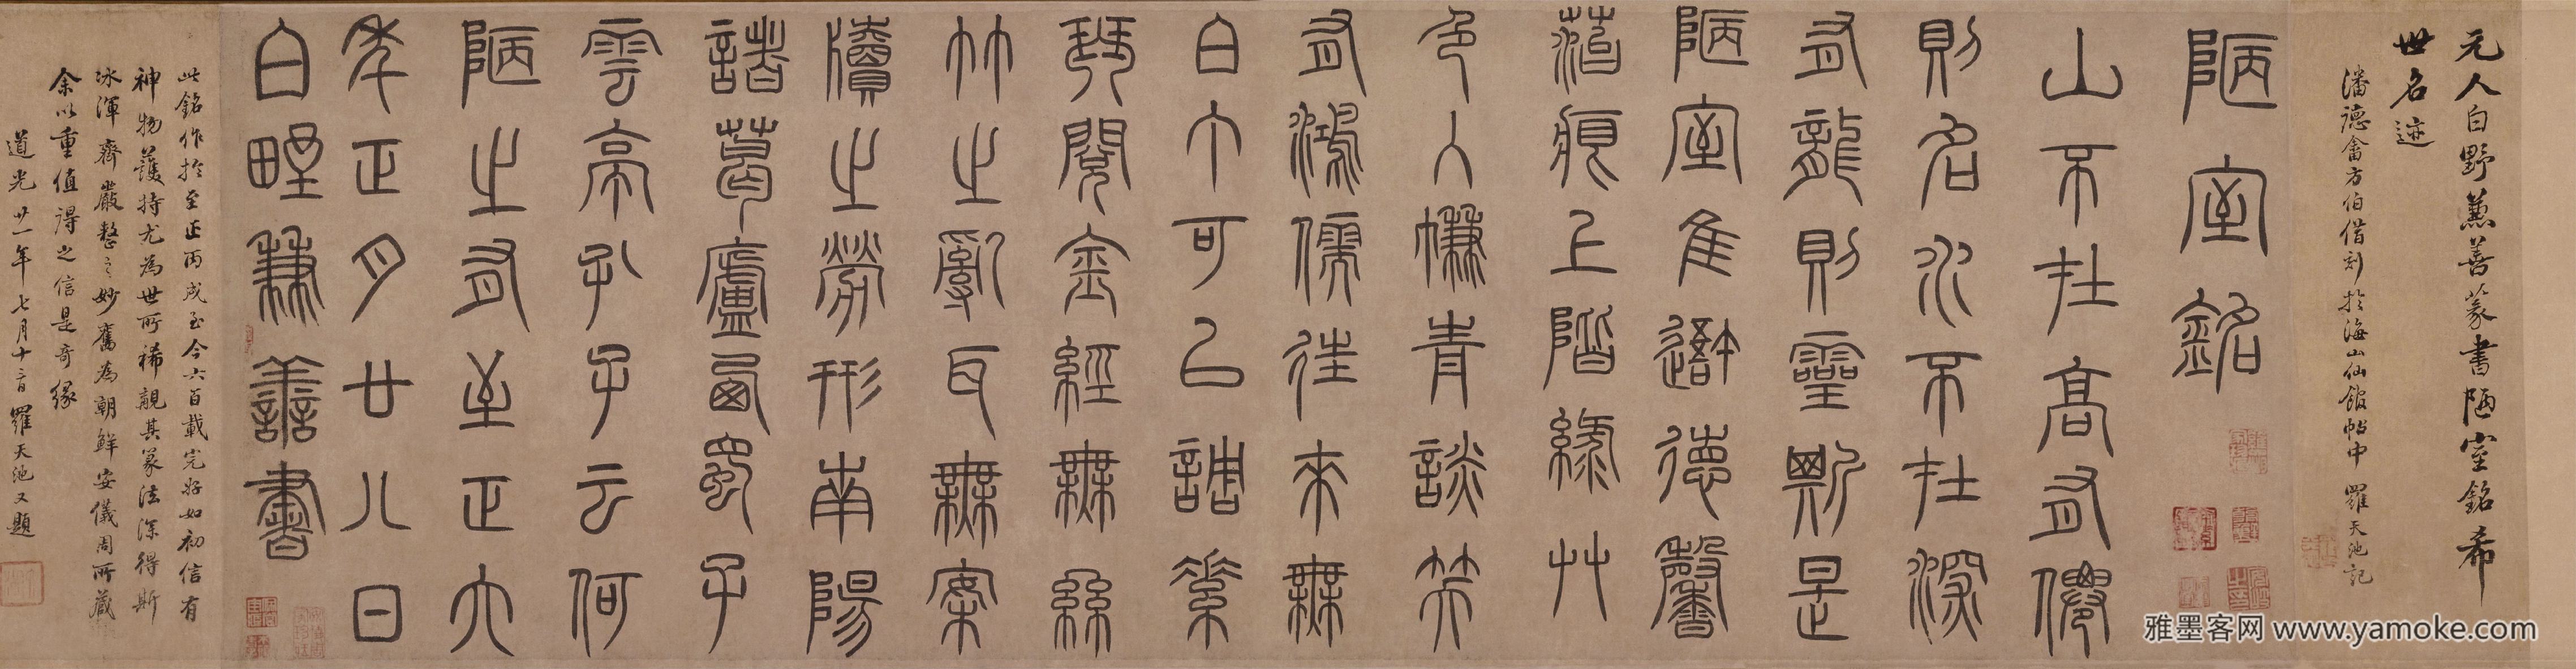 元人白野兼善篆書陋室銘希
世名迹
潘德畬方伯借刻於海山仙館帖中 羅天池記
陋室銘
山不在高有僊
則名水不在深
有龍則靈斯是
陋室隹吾德馨
苔痕上階綠艸
色入簾青談笑
有鴻儒往來無
白丁可以調素
琴閱金經無絲
竹之亂耳無案
牘之勞形南陽
諸葛廬西蜀子
雲亭孔子云何
陋之有至正六
年正月廿八日
白野兼善書
此銘作於至正丙戌至今六百載完好如初信有
神物護持尤為世所稀覯其篆法深得斯
冰渾齊嚴整之妙舊為朝鮮安儀周所藏
余以重值得之信是奇緣
道光廿一年七月十二日羅天池又題
雅墨客网 www.yamoke.com